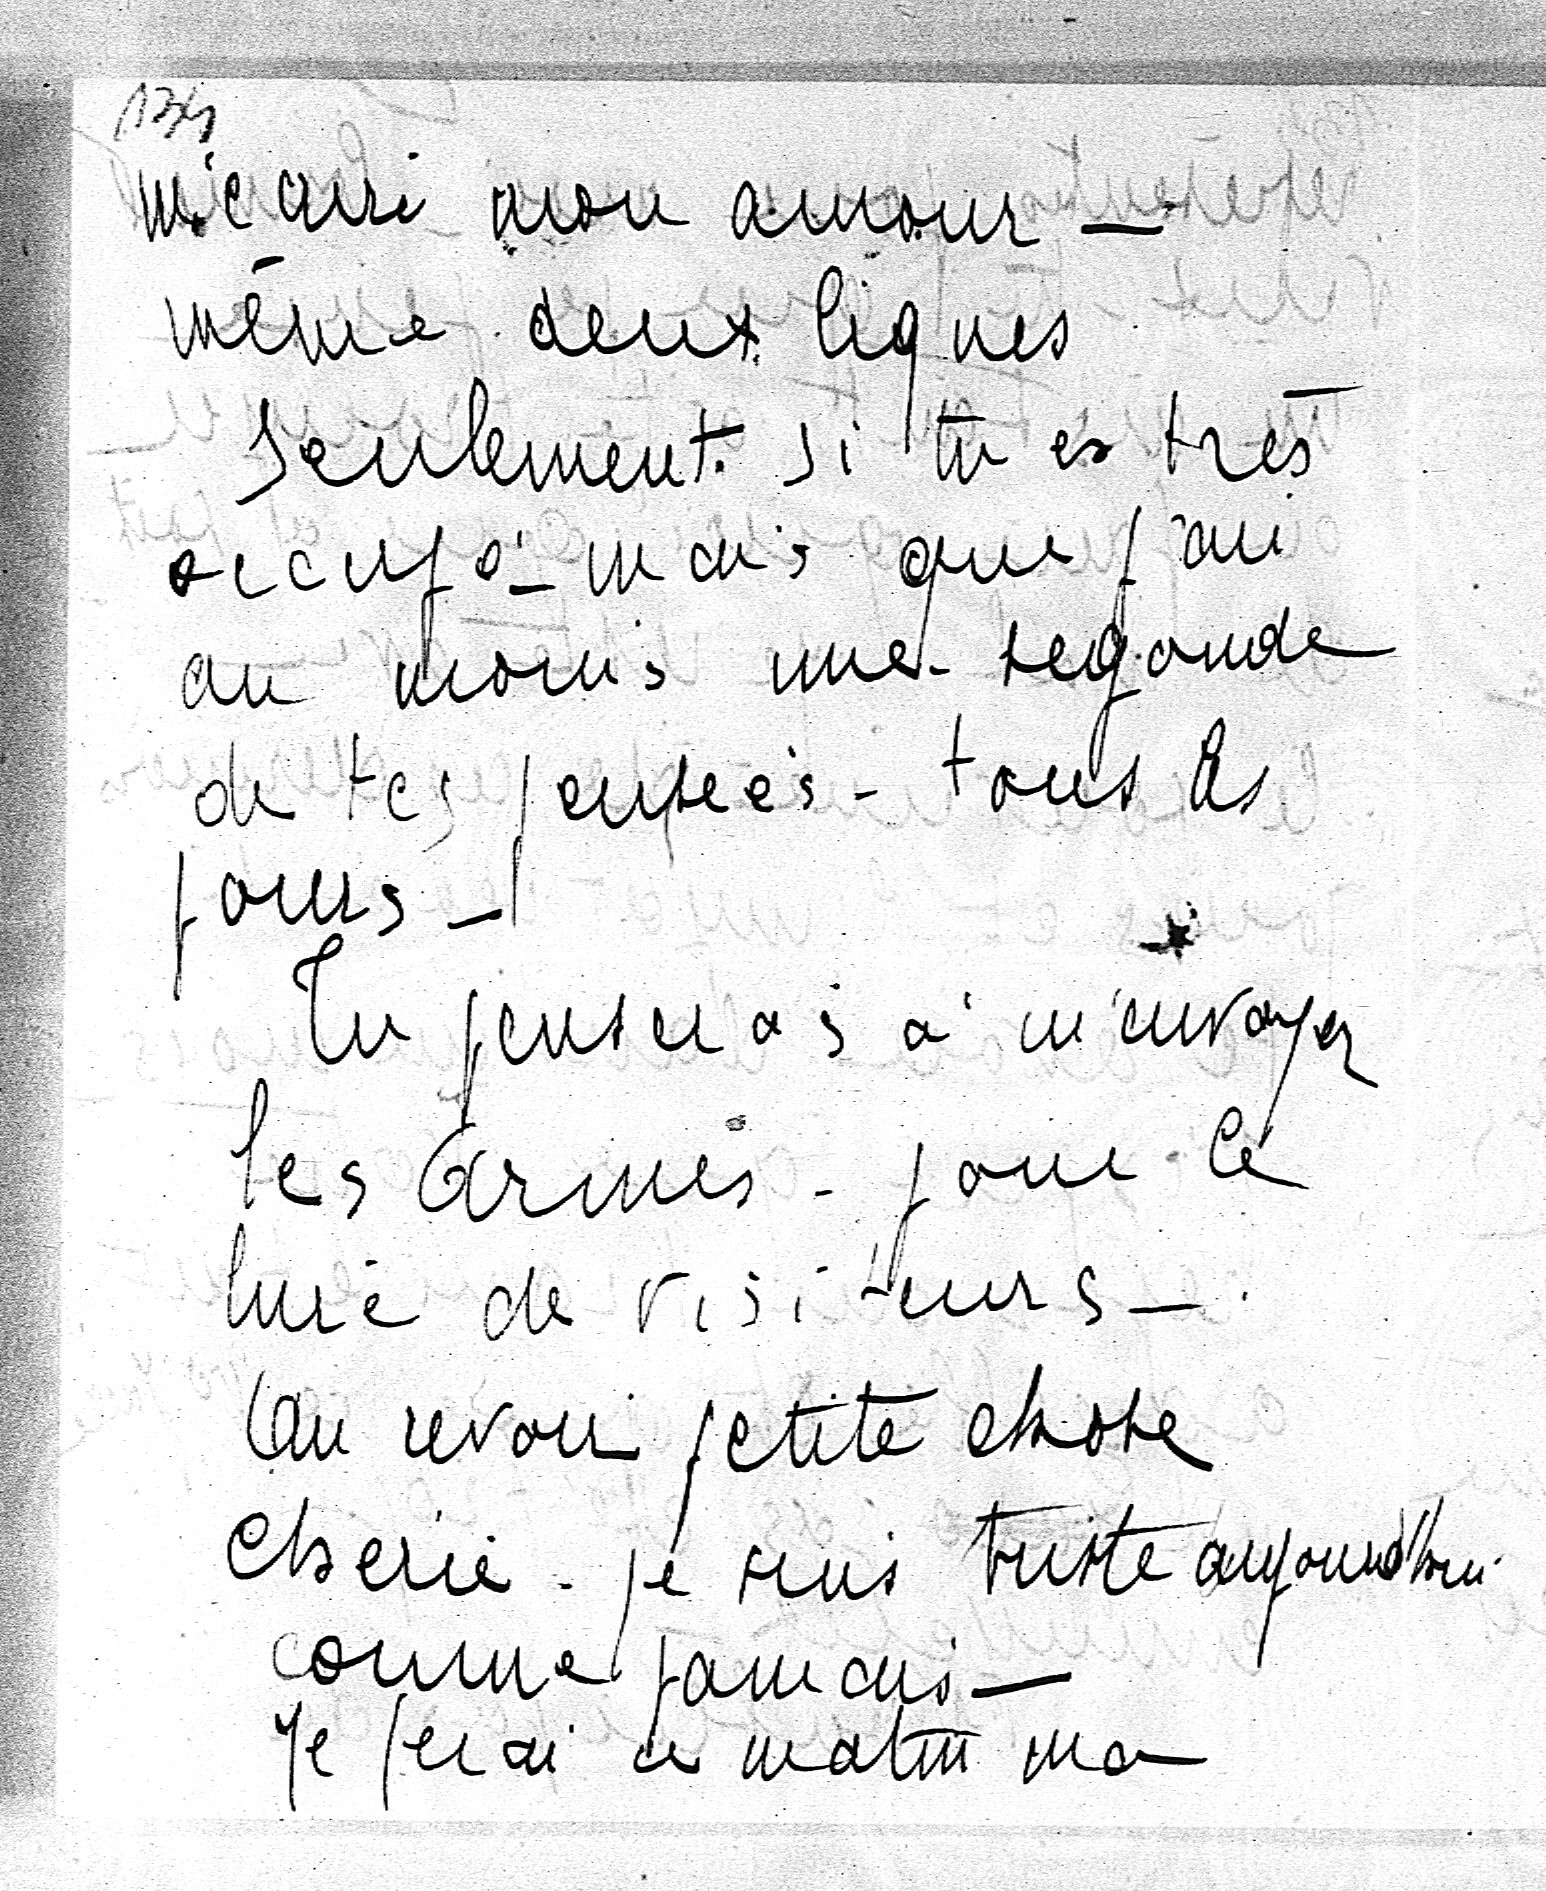 134
m'ecrire mon amour —
même deux lignes
seulement. si tu es très
occupé — mais que j'ai
au moins une segonde
de tes pensées - tous les
jours —
Tu penseras à m'envoyer
les Armes - pour le
livre de visiteurs —
Au revoir petite chose
cherie - je suis triste aujourd'hui
comme jamais —
Je ferai ce matin ma